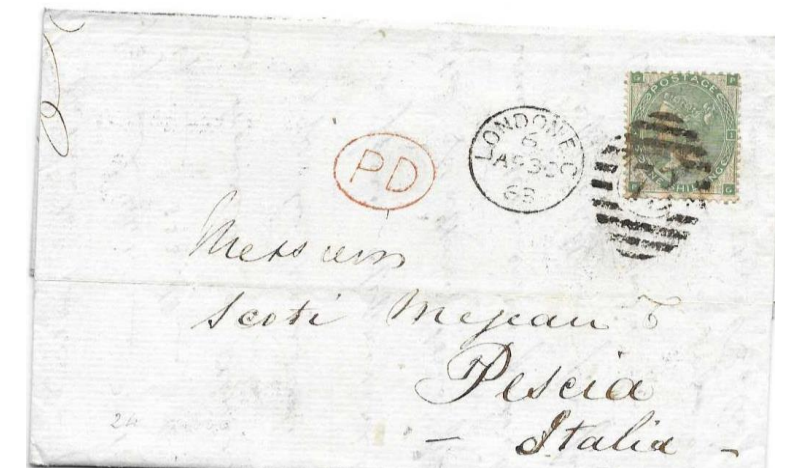 PD
LONDON E.C
6
AP 30
63
POSTAGE
ONE SHILLING
Messieurs
Scoti Mejean &
Pescia
Italia
24